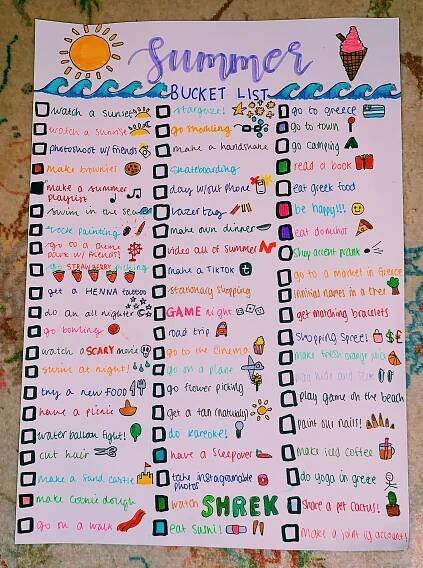 Summer
BUCKET LIST
watch a sunset
watch a sunrise
photoshoot w/ friends
make brownies
make a summer
playlist
swim in the sea
rock painting
go to a theme
park w/ friends!
go STRAWBERRY picking
get a HENNA tattoo
do an all nighter
go bowling
watch a SCARY movie
swim at night!
try a new FOOD
have a picnic
water balloon fight!
cut hair
make a sand castle
make cookie dough
go on a walk
stargaze!
go snorkling
make a handshake
skateboarding
day w/out phone
lazer tag
make own dinner
video all of summer
make a TikTok
stationary shopping
GAME night
road trip
go to the cinema
go on a plane
go flower picking
get a tan (naturally)
do kareoke!
have a sleepover
take instagramable
photos
watch SHREK
eat sushi!
go to greece
go to town
go camping
read a book
eat greek food
be happy!!!
eat dominos
Shop accent prank
go to a market in Greece
initial names in a tree
get matching bracelets
shopping spree!
$£
make fresh orange juice
play hide and seek
play game on the beach
paint our nails!
make iced coffee
do yoga in greece
share a pet cactus!
make a joint ig account!